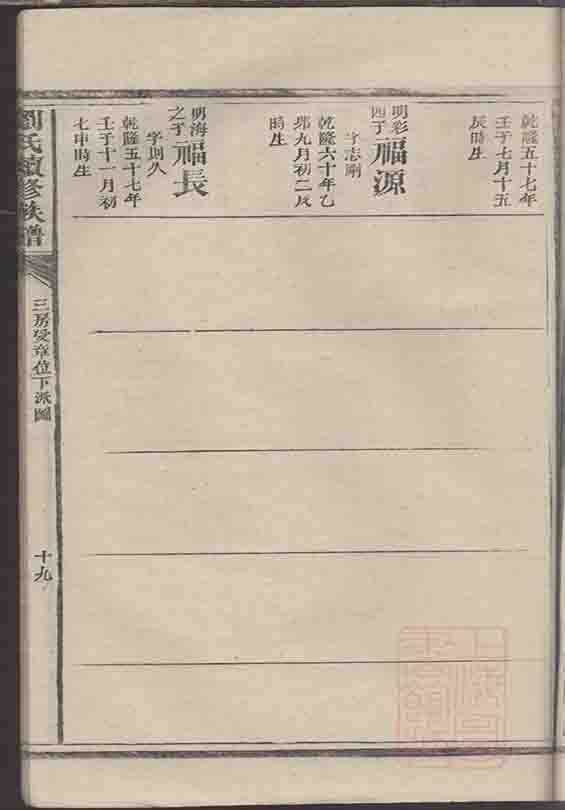 乾隆五十七年
壬子七月十五
辰時生
明彩
四子
福源
字志剛
乾隆六十年乙
卯九月初二辰
時生
明海
之子
福長
字則久
乾隆五十七年
壬子十一月初
七申時生
劉氏續修族譜
三房受章位下派圖
十九